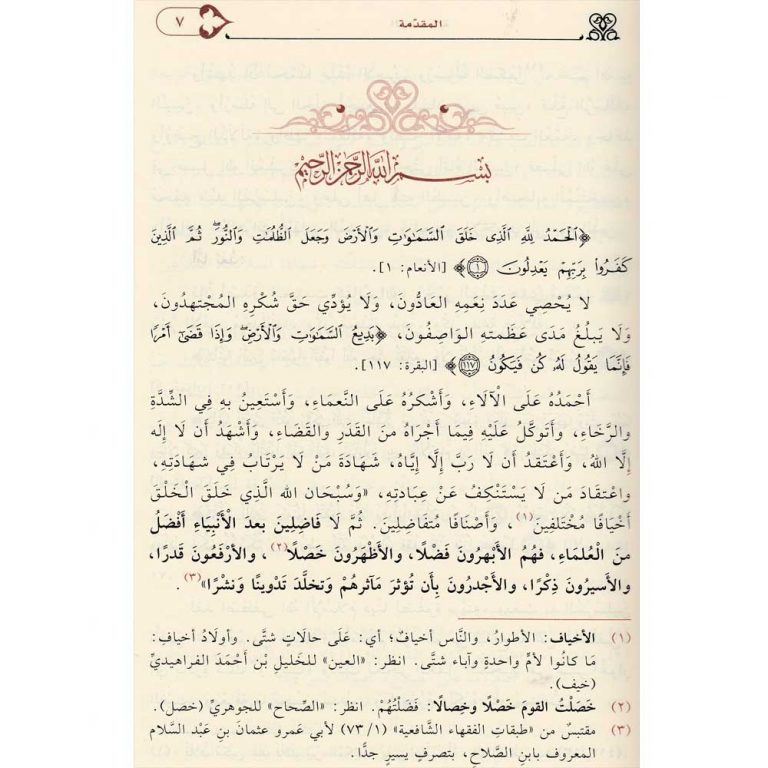 المقدّمة ٧
بسم الله الرحمن الرحيم
﴿ٱلْحَمْدُ لِلَّهِ ٱلَّذِى خَلَقَ ٱلسَّمَٰوَٰتِ وَٱلْأَرْضَ وَجَعَلَ ٱلظُّلُمَٰتِ وَٱلنُّورَ ۖ ثُمَّ ٱلَّذِينَ
كَفَرُوا۟ بِرَبِّهِمْ يَعْدِلُونَ ۝١﴾ [الأنعام: ١].
لا يُحْصِي عَدَدَ نِعَمِهِ العَادُّونَ، وَلَا يُؤدِّي حَقَّ شُكْرِهِ المُجْتهِدُونَ،
وَلَا يَبلُغُ مَدَى عَظَمتِهِ الوَاصِفُونَ، ﴿بَدِيعُ ٱلسَّمَٰوَٰتِ وَٱلْأَرْضِ ۖ وَإِذَا قَضَىٰٓ أَمْرًا
فَإِنَّمَا يَقُولُ لَهُۥ كُن فَيَكُونُ ۝١١٧﴾ [البقرة: ١١٧].
أَحْمَدُهُ عَلَى الآلَاءِ، وَأَشْكرُهُ عَلَى النَّعمَاءِ، وَأَسْتَعِينُ بهِ فِي الشِّدَّةِ
والرَّخَاءِ، وَأَتَوكَّلُ عَلَيْهِ فِيمَا أَجْرَاهُ منَ القَدَرِ وَالقَضَاءِ، وَأَشْهَدُ أَن لَا إِلَه
إِلَّا اللهُ، وَأَعْتَقدُ أَن لَا رَبَّ إِلَّا إِيَّاهُ، شَهَادَةَ مَنْ لَا يَرْتَابُ فِي شهَادَتِهِ،
واعتقَادَ مَن لَا يَسْتَنْكِفُ عَنْ عِبَادتِهِ، «وَسُبْحَان الله الَّذِي خَلَقَ الْخَلْقَ
أَخْيَافًا مُخْتَلفِينَ(١)، وَأَصْنَافًا مُتَفَاضِلِينَ. ثُمَّ لَا فَاضِلِينَ بعدَ الأَنْبِيَاءِ أَفْضَلُ
منَ العُلَمَاءِ، فَهُمُ الأَبْهَرُونَ فَضْلًا، والأَظْهَرُونَ خَصْلًا(٢)، والأَرْفَعُونَ قَدرًا،
والأَسيرُونَ ذِكْرًا، والأَجْدرُونَ بِأَن تُؤثرَ مَآثرهُمْ وَتخلَّد تَدْوينًا وَنشْرًا»(٣).
(١) الأخياف: الأطوارُ، والنَّاس أخيافٌ؛ أي: عَلَى حالَات شتَّى. وأولَادُ أخيافٍ:
مَا كانُوا لأمٍّ واحدةٍ وآباء شتَّى. انظر: «العين» للخَليلِ بْن أَحْمَدَ الفراهيديِّ
(خيف).
(٢) خَصَلْتُ القومَ خَصْلًا وخِصالًا: فَضَلْتُهُمْ. انظر: «الصِّحاح» للجوهريِّ (خصل).
(٣) مقتبَس من «طبقاتِ الفقهاءِ الشَّافعية» (٧٣/١) لأبي عَمرو عثمانَ بن عَبْد السَّلام
المعروف بابنِ الصَّلَاحِ، بتصرفٍ يسيرٍ جدًّا.